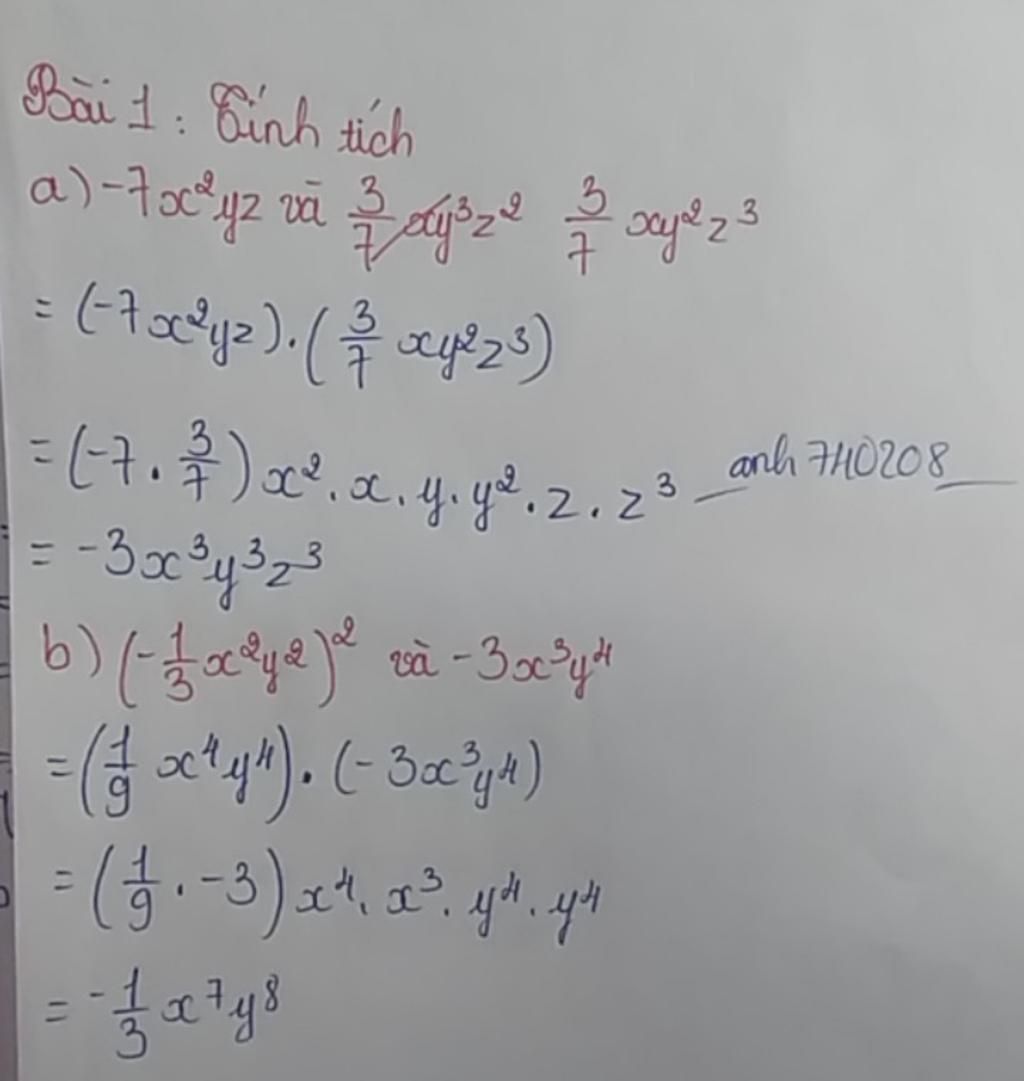 Bài 1 : Tính tích
a) -7x²yz và 3/7 xy³z² 3/7 xy²z³
= (-7x²yz).(3/7 xy²z³)
= (-7 . 3/7) x² . x . y . y² . z . z³ anh7410208
= -3x³y³z³
b) (-1/3 x²y²)² và -3x³y⁴
= (1/9 x⁴y⁴) . (-3x³y⁴)
= (1/9 . -3) x⁴ . x³ . y⁴ . y⁴
= -1/3 x⁷y⁸